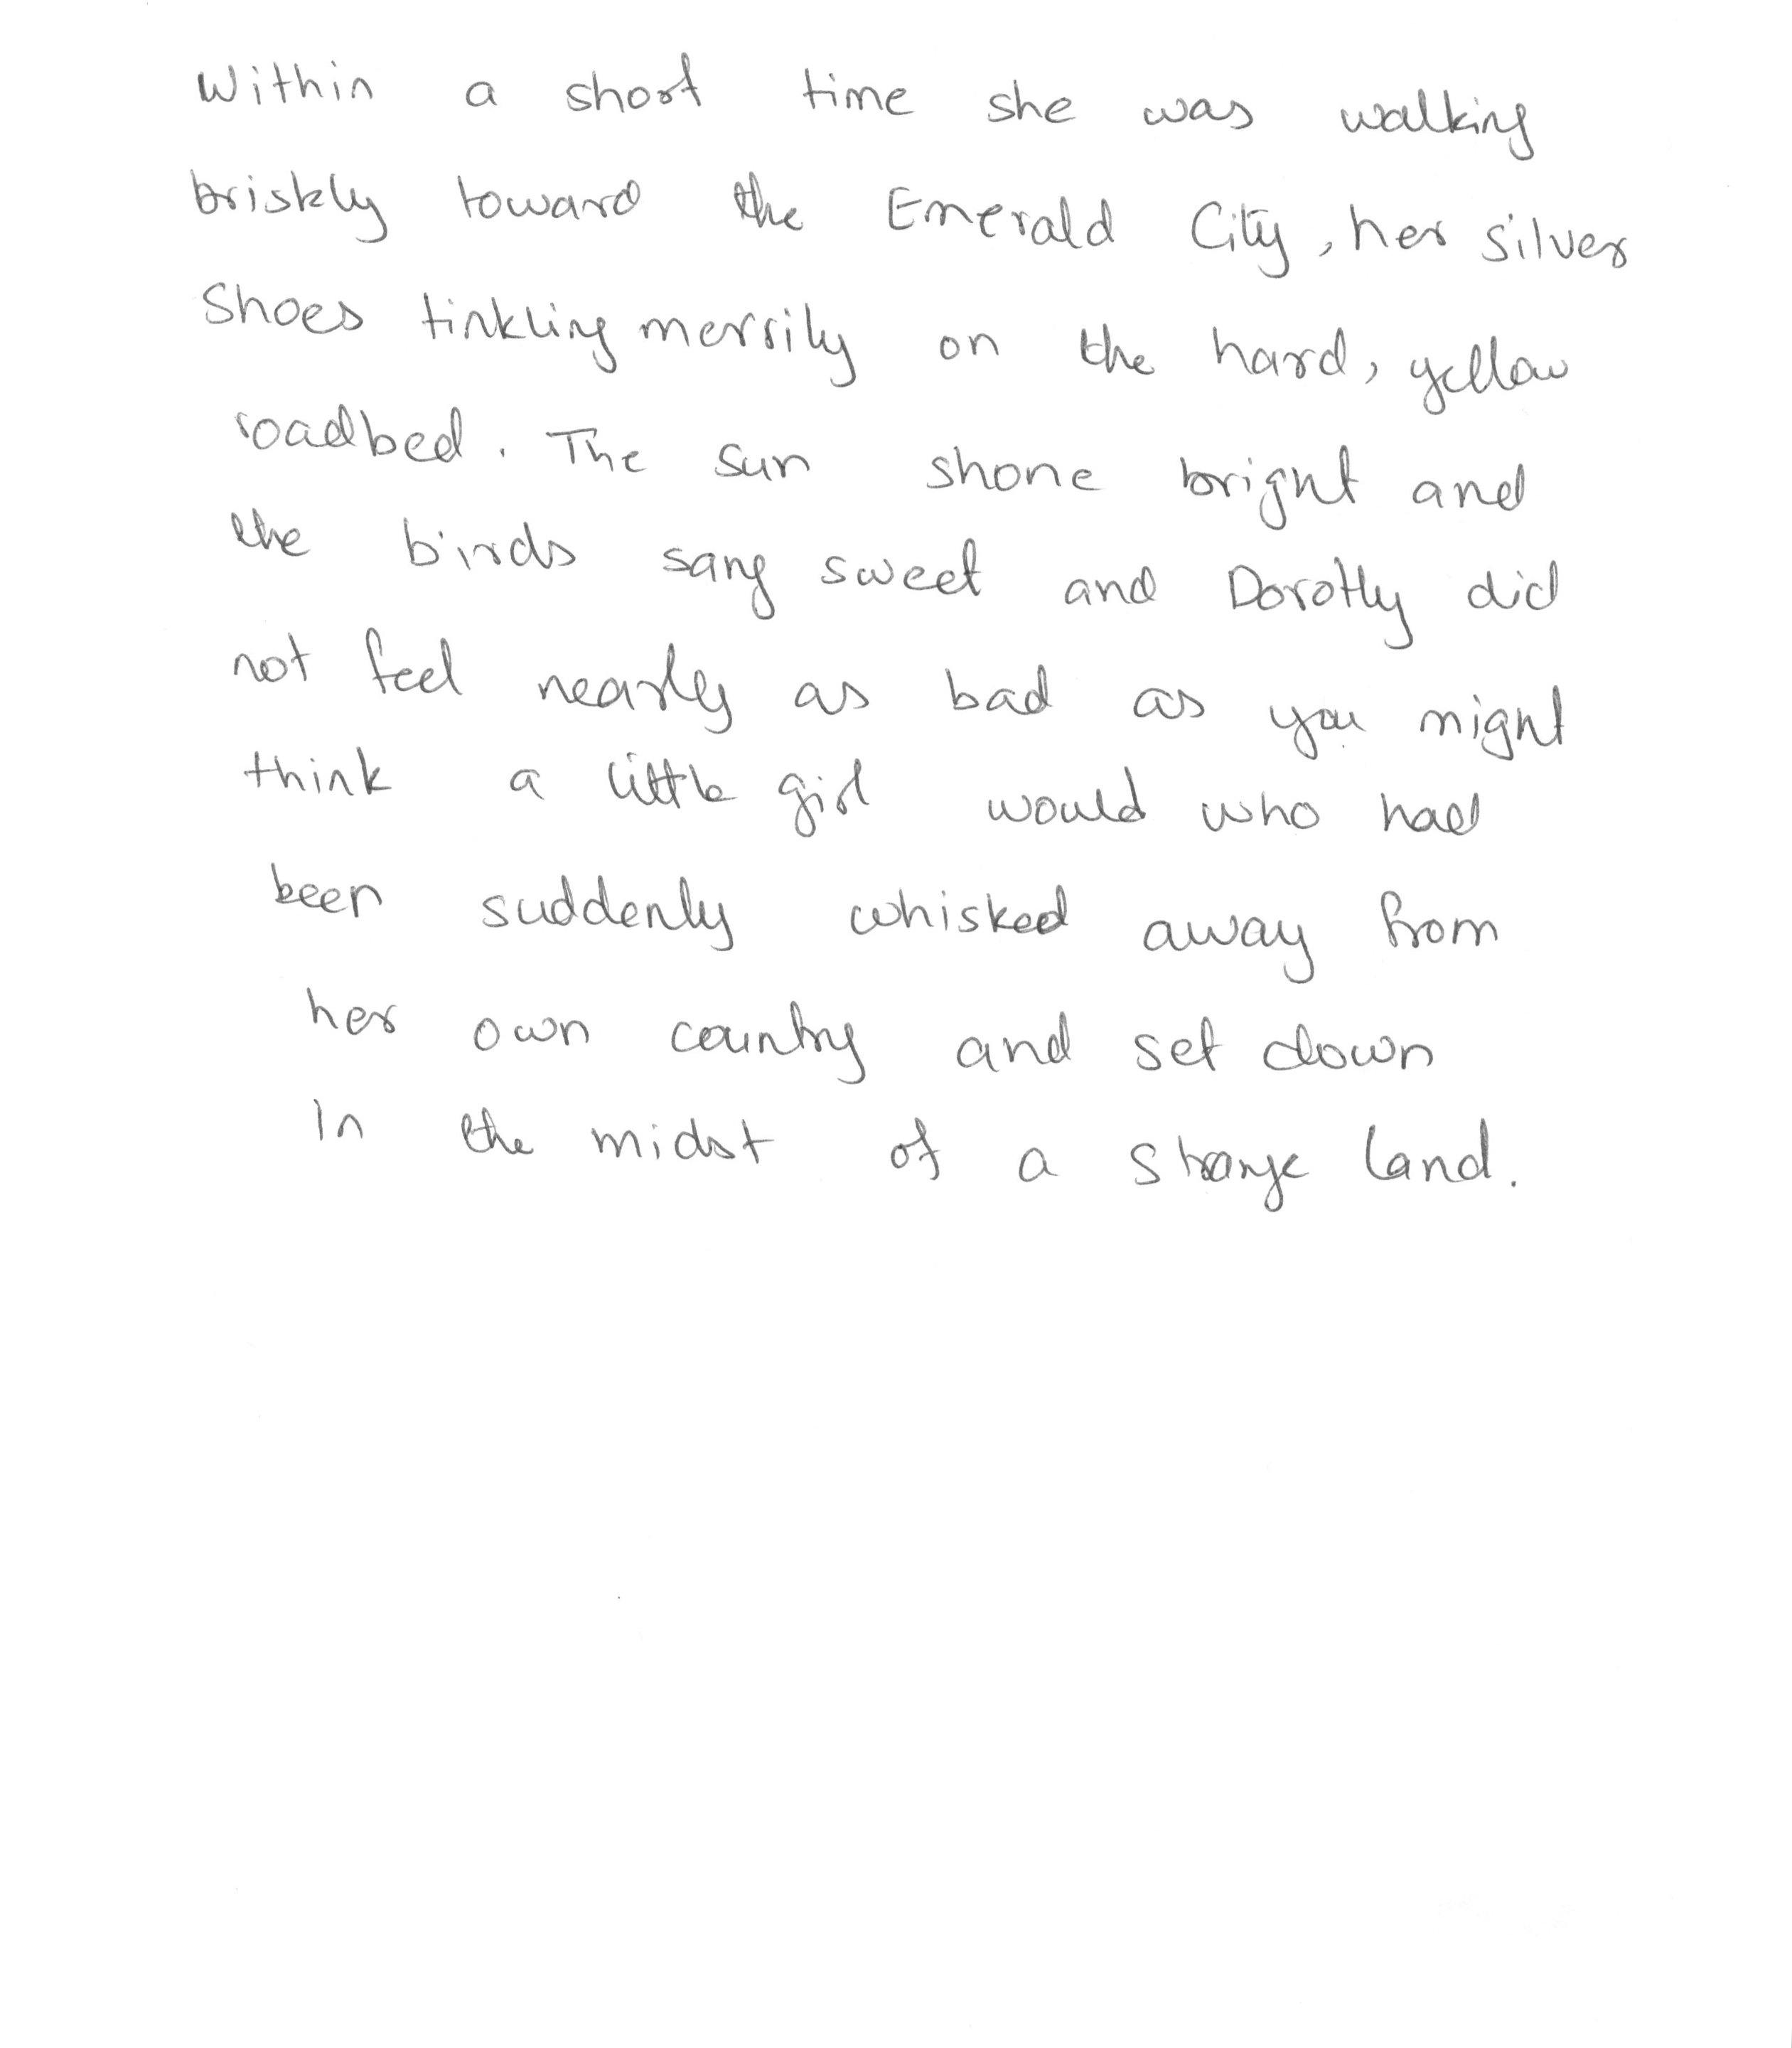 Within a short time she was walking
briskly toward the Emerald City, her silver
Shoes tinkling merrily on the hard, yellow
roadbed. The sun shone bright and
the birds sang sweet and Dorothy did
not feel nearly as bad as you might
think a little girl would who had
been suddenly whisked away from
her own country and set down
in the midst of a strange land.